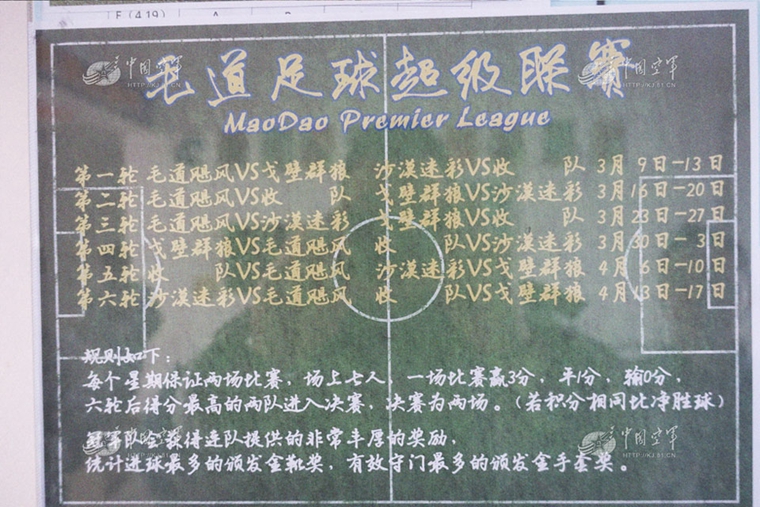 E (4.19)
毛道足球超级联赛
MaoDao Premier League
第一轮 毛道飓风VS戈壁群狼 沙漠迷彩VS收 队 3月 9日-13日
第二轮 毛道飓风VS收 队 戈壁群狼VS沙漠迷彩 3月16日-20日
第三轮 毛道飓风VS沙漠迷彩 戈壁群狼VS收 队 3月23日-27日
第四轮 戈壁群狼VS毛道飓风 收 队VS沙漠迷彩 3月30日- 3日
第五轮 收 队VS毛道飓风 沙漠迷彩VS戈壁群狼 4月 6日-10日
第六轮 沙漠迷彩VS毛道飓风 收 队VS戈壁群狼 4月13日-17日
规则如下：
每个星期保证两场比赛，场上七人，一场比赛赢3分，平1分，输0分，
六轮后得分最高的两队进入决赛，决赛为两场。（若积分相同比净胜球）
冠军队会获得连队提供的非常丰厚的奖励，
统计进球最多的颁发金靴奖，有效守门最多的颁发金手套奖。
中国空军
HTTP://KJ.81.CN
中国空军
HTTP://KJ.81.CN
中国空军
HTTP://KJ.81.CN